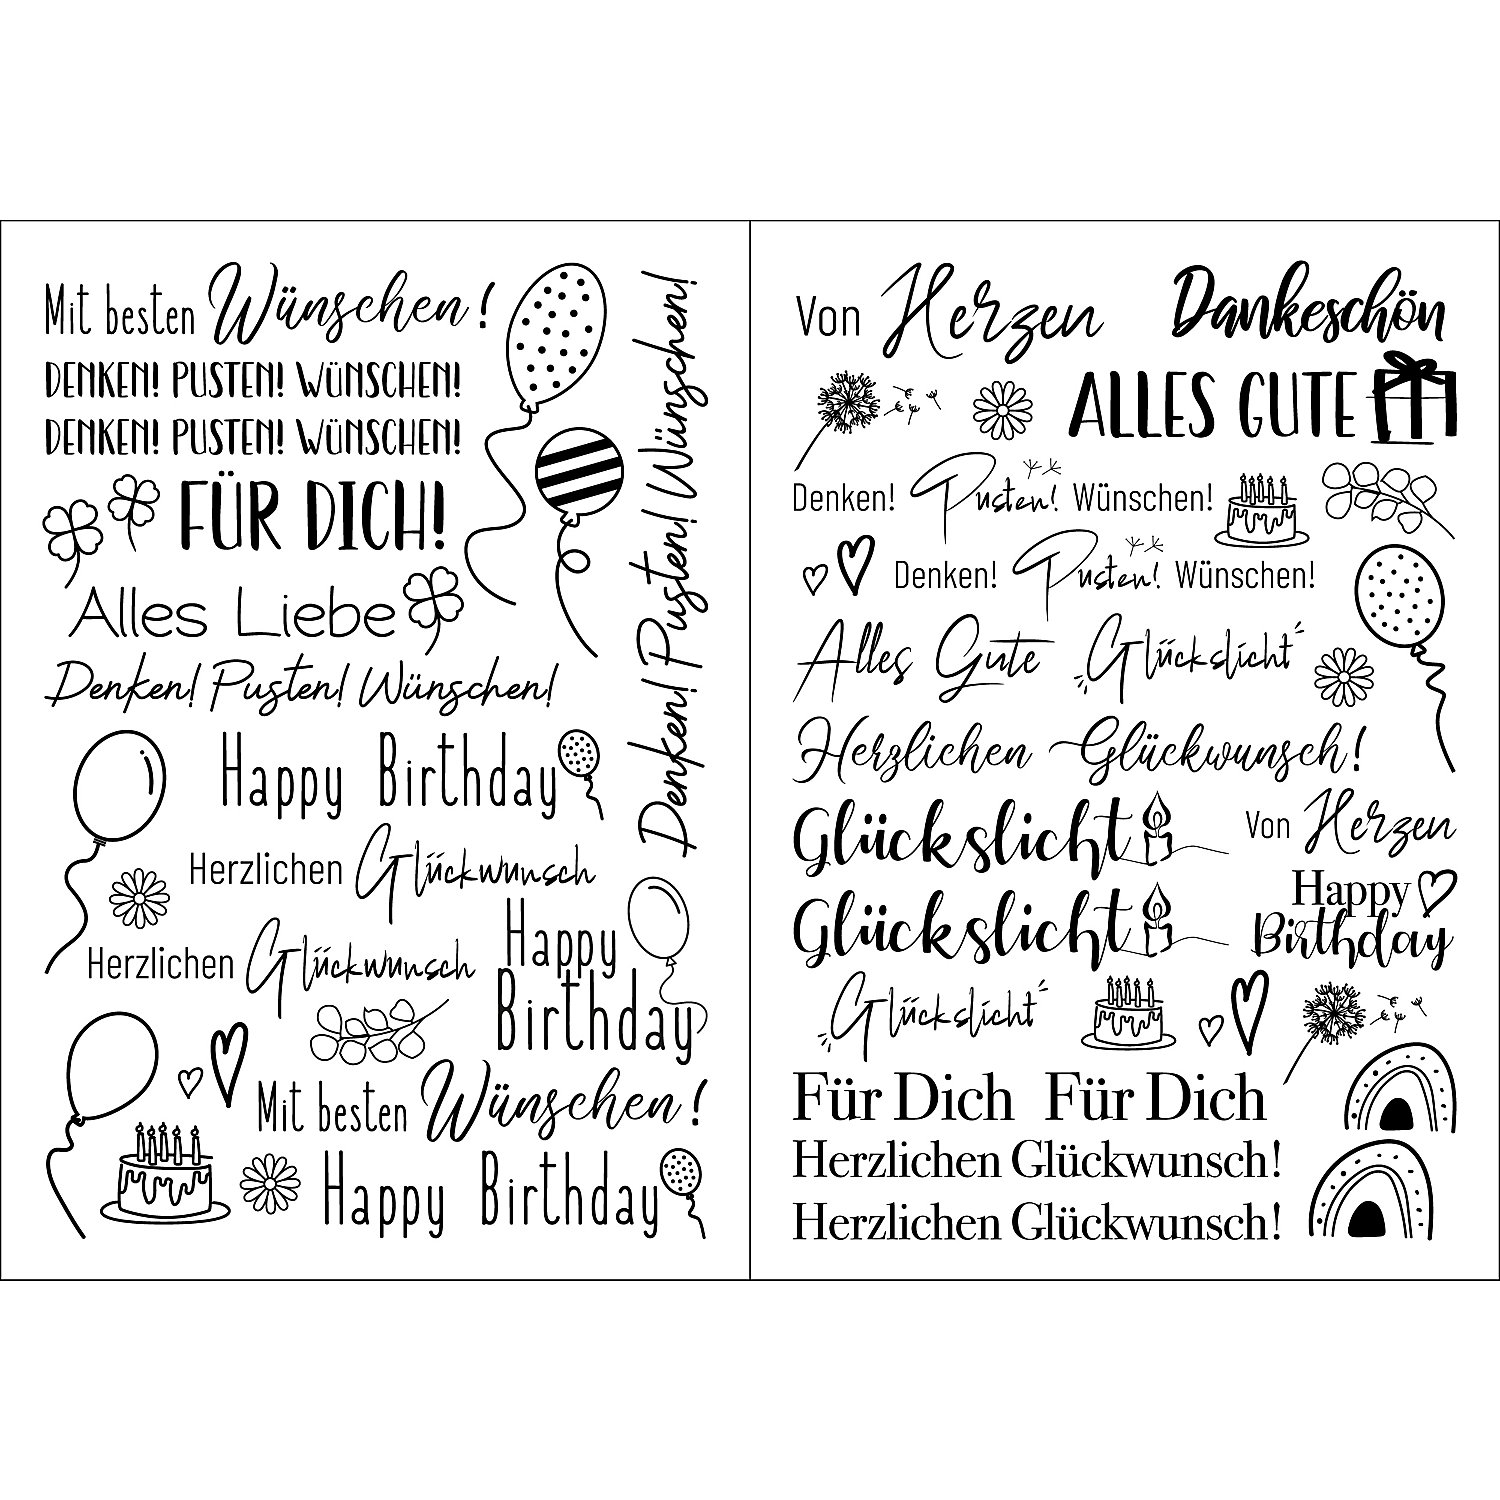 Mit besten Wünschen!
DENKEN! PUSTEN! WÜNSCHEN!
DENKEN! PUSTEN! WÜNSCHEN!
FÜR DICH!
Alles Liebe
Denken! Pusten! Wünschen!
Denken! Pusten! Wünschen!
Happy Birthday
Herzlichen Glückwunsch
Herzlichen Glückwunsch
Happy
Birthday
Mit besten Wünschen!
Happy Birthday
Von Herzen
Dankeschön
ALLES GUTE
Denken! Pusten! Wünschen!
Denken! Pusten! Wünschen!
Alles Gute
Glückslicht
Herzlichen Glückwunsch!
Glückslicht
Von Herzen
Glückslicht
Happy
Birthday
Glückslicht
Für Dich Für Dich
Herzlichen Glückwunsch!
Herzlichen Glückwunsch!